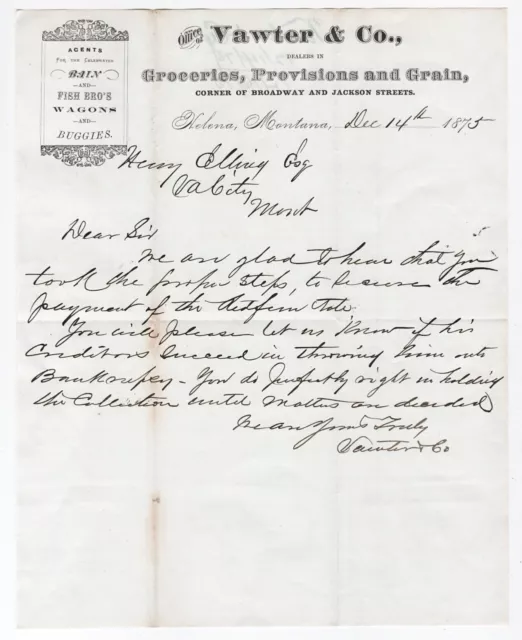 AGENTS
FOR THE CELEBRATED
BAIN
—AND—
FISH BRO'S
WAGONS
—AND—
BUGGIES.
Office of VAWTER & CO.,
DEALERS IN
Groceries, Provisions and Grain,
CORNER OF BROADWAY AND JACKSON STREETS.
Helena, Montana, Dec 14th 1875
Henry Elling Esq
Va City
Mont
Dear Sir
We are glad to hear that you
took the proper steps, to secure the
payment of the Redfern Note.
You will please let us know if his
Creditors succeed in throwing him into
Bankruptcy - You do perfectly right in holding
the Collection until matters are decided
We are Yours Truly
Vawter & Co